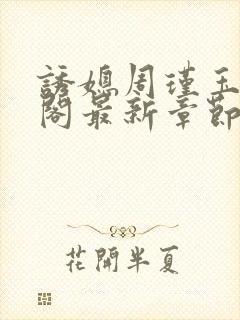 誘媳周瑾玉
閣最新章節
花開半夏